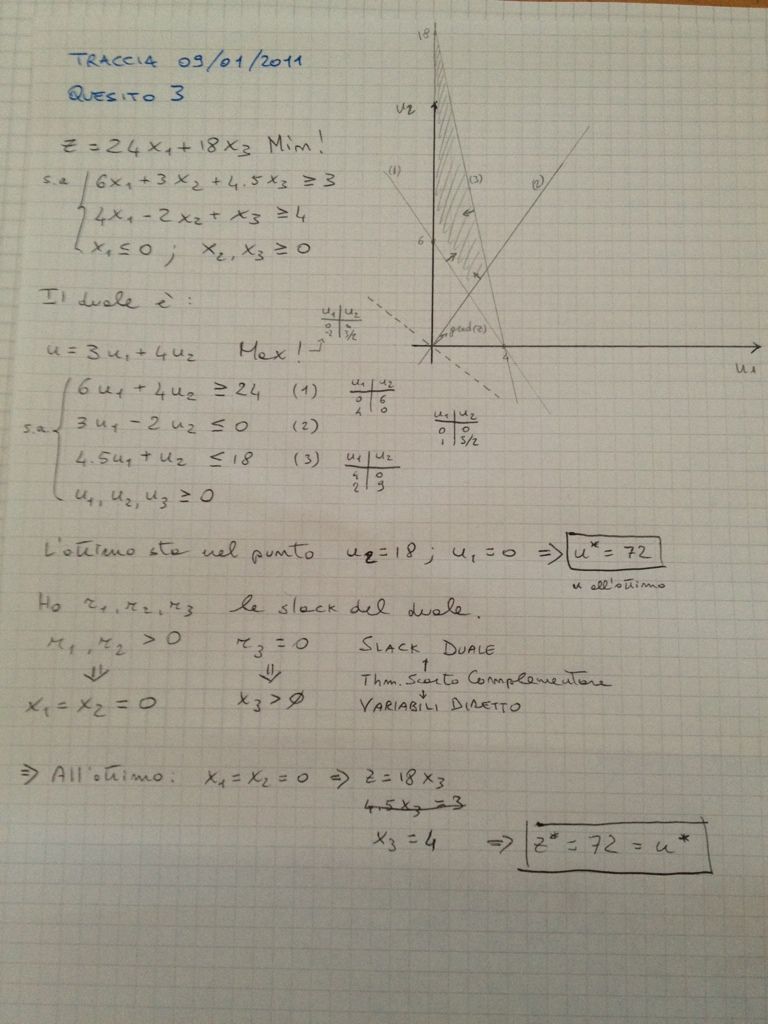 TRACCIA 09/01/2011
QUESITO 3
z = 24x₁ + 18x₃ Mim!
s.a
6x₁ + 3x₂ + 4.5x₃ ≥ 3
4x₁ - 2x₂ + x₃ ≥ 4
x₁ ≤ 0 ; x₂, x₃ ≥ 0
18
u₂
(1)
(3)
(2)
6
grad(z)
4
u₁
Il duale è :
u₁ u₂
u = 3u₁ + 4u₂ Max!
s.a
6u₁ + 4u₂ ≥ 24 (1)
u₁ u₂
0 6
4 0
3u₁ - 2u₂ ≤ 0 (2)
u₁ u₂
0 0
1 3/2
4.5u₁ + u₂ ≤ 18 (3)
u₁ u₂
4 0
2 9
u₁, u₂, u₃ ≥ 0
L'ottimo sta nel punto u₂ = 18 ; u₁ = 0 ⇒ u* = 72
u all'ottimo
Ho r₁, r₂, r₃ le slack del duale.
r₁, r₂ > 0 r₃ = 0 SLACK DUALE
⇓ ⇓ ↑
Thm. Scarto Complementare
↓
x₁ = x₂ = 0 x₃ > 0 VARIABILI DIRETTO
⇒ All'ottimo: x₁ = x₂ = 0 ⇒ z = 18x₃
4.5x₃ = 3
x₃ = 4 ⇒ z* = 72 = u*